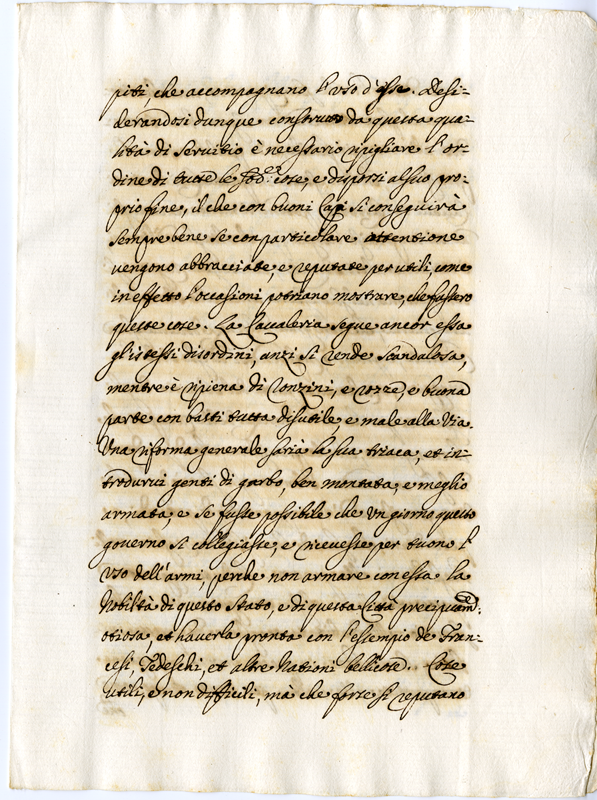 piti, che accompagnano l'uso d'esse. Desi=
derandosi dunque construtto da questa qua=
lità di servitio è necessario ripigliare l'or=
dine di tutte le sod.e cose, e disporsi al suo pro=
prio fine, il che con buoni Capi si conseguirà
sempre bene se con particolare attentione
vengono abbracciate, e reputate per utili, come
in effetto l'occasioni potriano mostrare, che fussero
queste cose. La Cavaleria segue ancor essa
gl'istessi disordini, anzi si rende scandalosa,
mentre è ripiena di Ronzini, e rozze, e buona
parte con basti tutta disutile e male alla via.
Una riforma generale saria la sua triaca, et in=
trodurvi genti di garbo, ben montata, e meglio
armata, e se fusse possibile che un giorno questo
governo si collegiasse, e ricevesse per buono l'
uso dell'armi, perche non armare con essa la
Nobiltà di questo Stato, e di questa Città precipuam.te
otiosa, et haverla pronta con l'essempio de Fran=
cesi, Tedeschi, et altre Nationi bellicose. Cose
utili, e non difficili, ma che forse si reputano